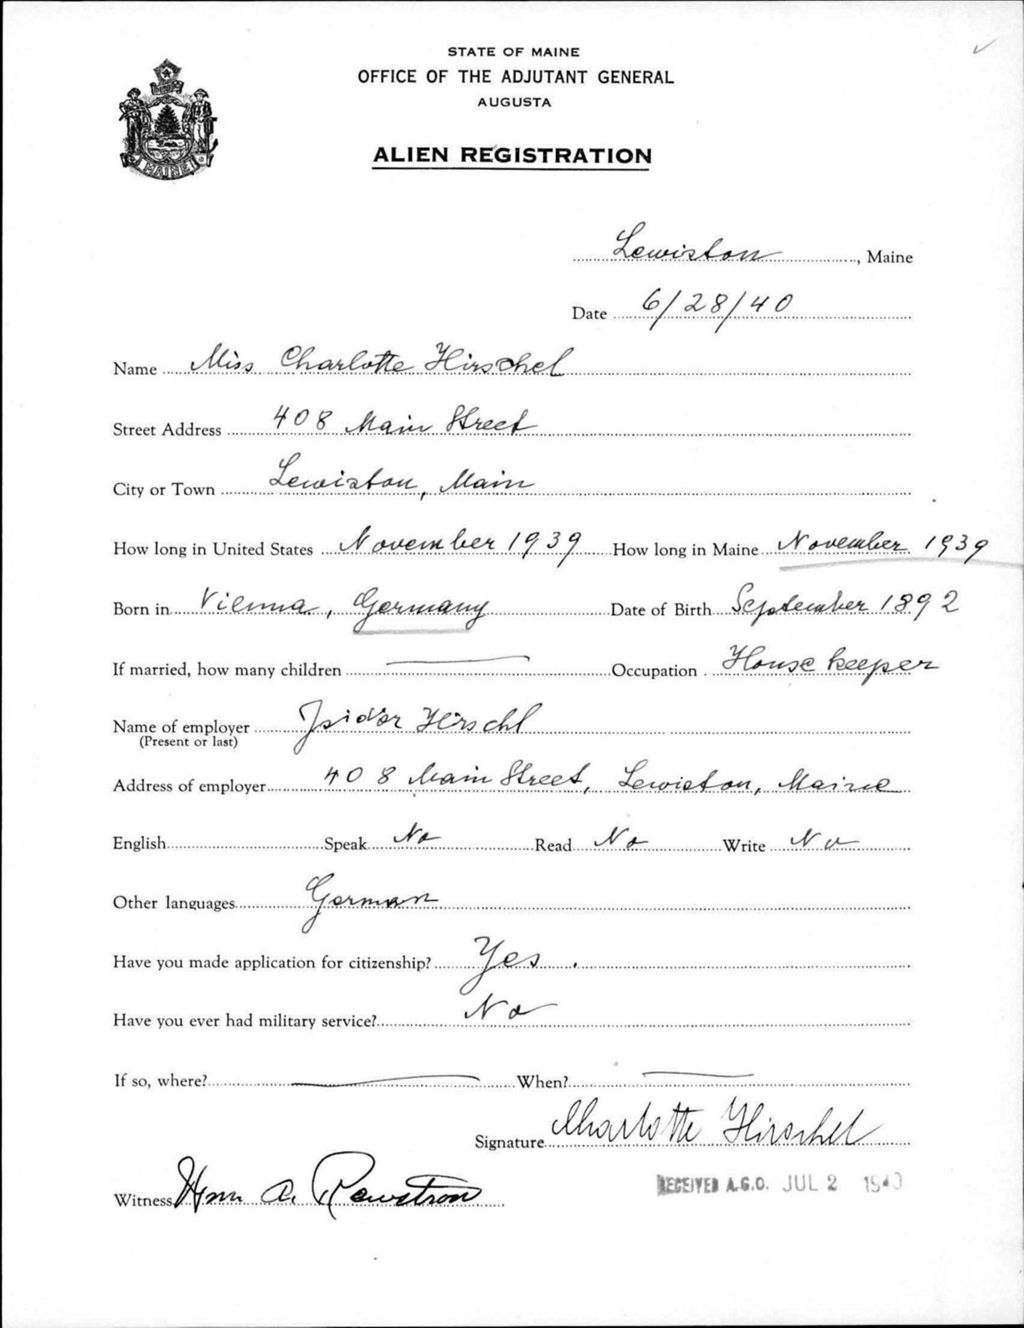 STATE OF MAINE
OFFICE OF THE ADJUTANT GENERAL
AUGUSTA
ALIEN REGISTRATION
MAINE
Lewiston, Maine
Date 6/28/40
Name Miss Charlotte Hirschel
Street Address 408 Main Street
City or Town Lewiston, Main
How long in United States November 1939 How long in Maine November 1939
Born in Vienna, Germany Date of Birth September 1892
If married, how many children Occupation Housekeeper
Name of employer Isidor Hirschl
(Present or last)
Address of employer 408 Main Street, Lewiston, Maine
English Speak No Read No Write No
Other languages German
Have you made application for citizenship? Yes.
Have you ever had military service? No
If so, where? When?
Signature Charlotte Hirschel
Witness A. Rewstron
RECEIVED A.G.O. JUL 2 1940